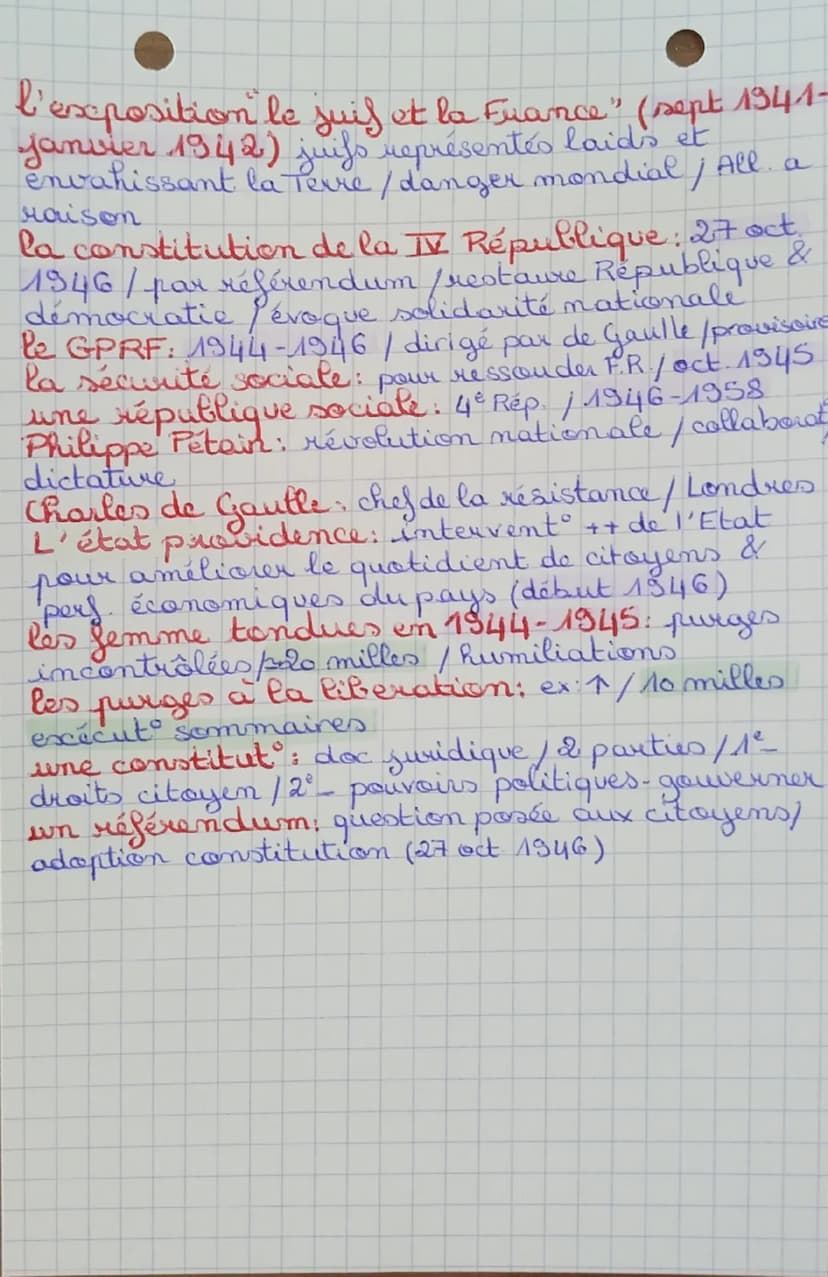 l'exposition "le juif et la France" (sept 1941-
janvier 1942) juifs représentés laids et
envahissant la Terre / danger mondial / All. a
raison
la constitution de la IV République : 27 oct.
1946 / par référendum / restaure République &
démocratie / évoque solidarité nationale
le GPRF : 1944-1946 / dirigé par de Gaulle / provisoire
la sécurité sociale : pour ressouder F.R. / oct. 1945
une république sociale : 4e Rép. / 1946-1958
Philippe Pétain : révolution nationale / collaborat°
dictature
Charles de Gaulle : chef de la résistance / Londres
L'état providence : intervent° ++ de l'Etat
pour améliorer le quotidient de citoyens &
perf. économiques du pays (début 1946)
les femme tondues en 1944-1945 : purges
incontrôlées / ≃20 milles / humiliations
les purges à la libération : ex : ↑ / 10 milles
exécut° sommaires
une constitut° : doc juridique / 2 parties / 1e-
droits citoyen / 2e- pouvoirs politiques - gouverner
un référendum : question posée aux citoyens /
adoption constitution (27 oct 1946)